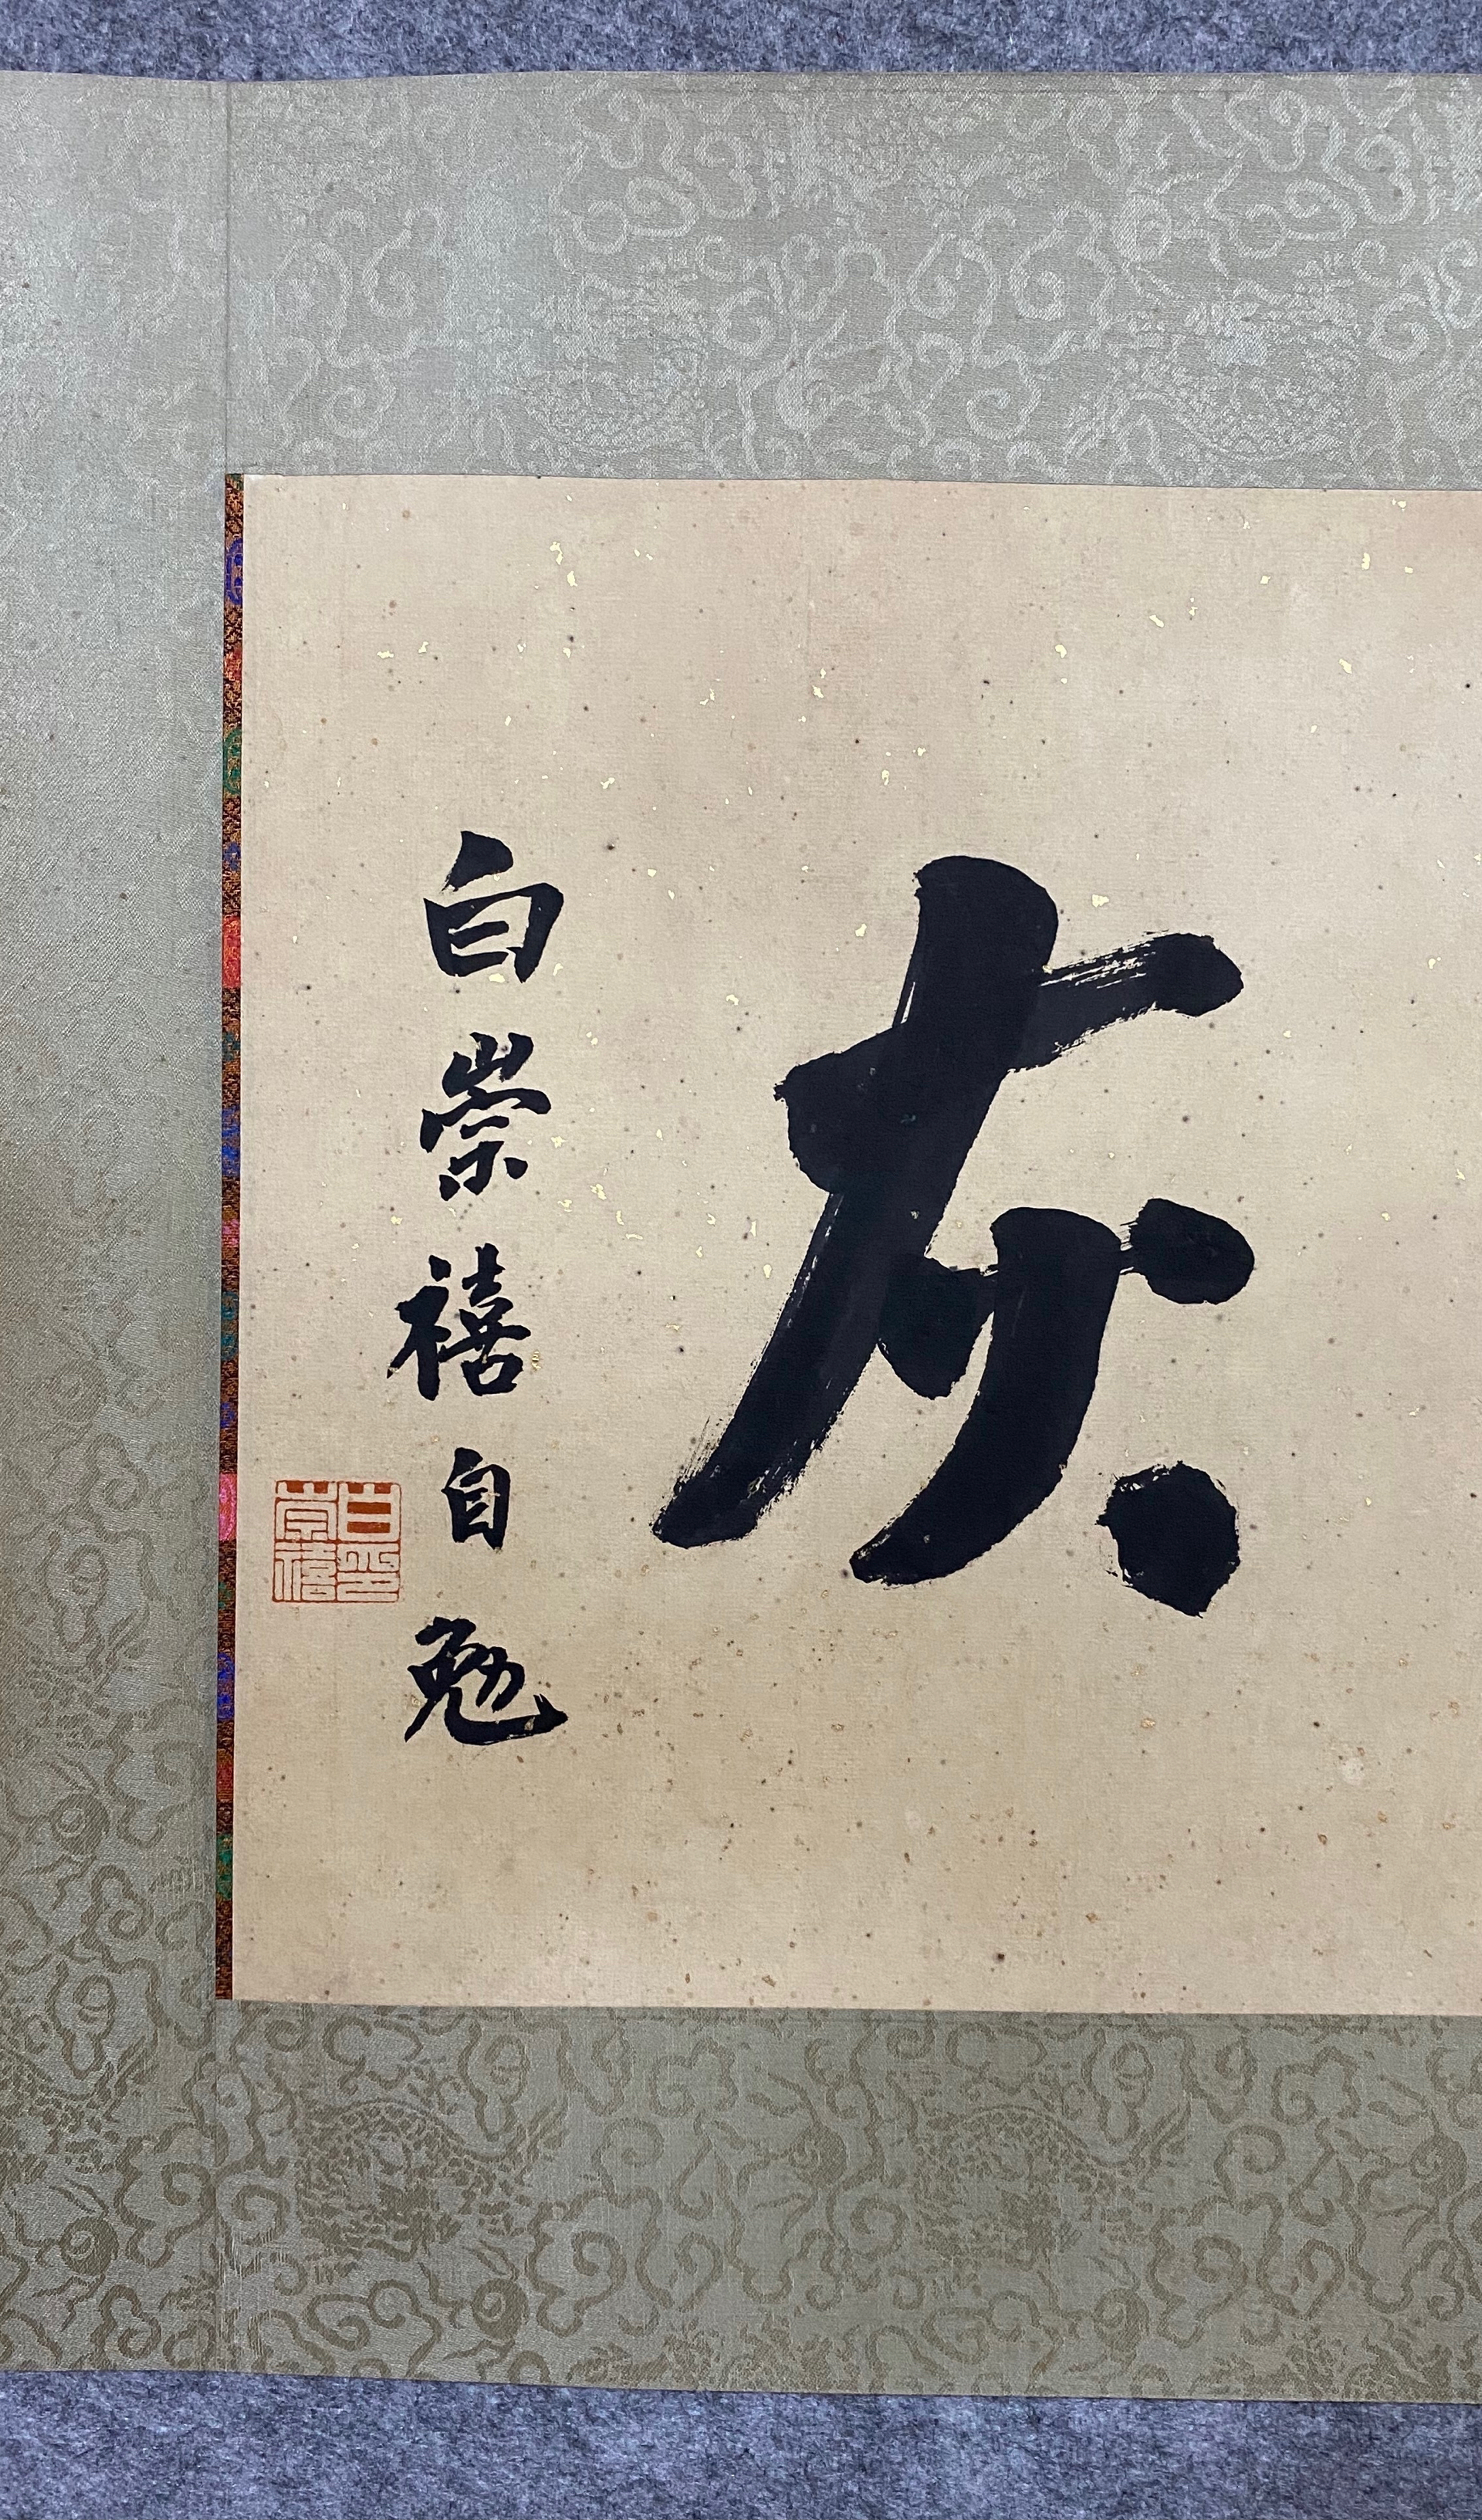 灰
白崇禧自勉
白崇禧印